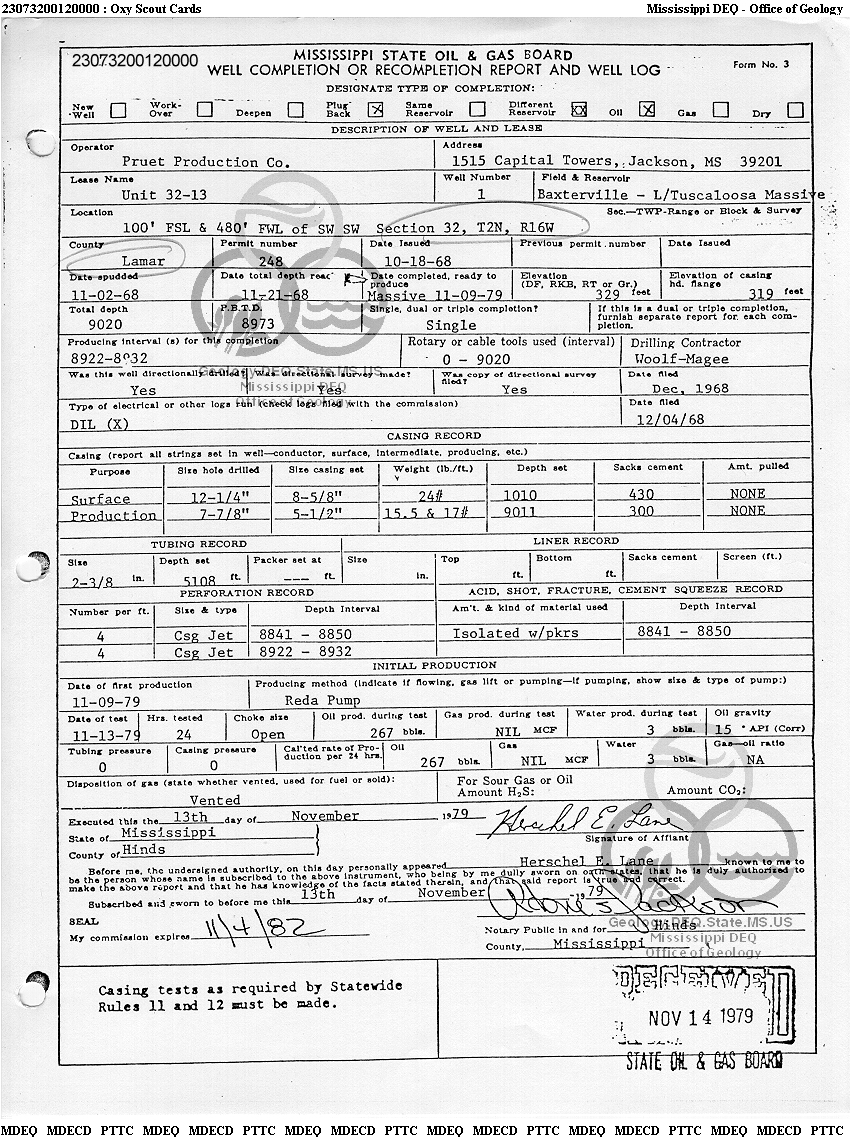 23073200120000 : Oxy Scout Cards Mississippi DEQ - Office of Geology
23073200120000
MISSISSIPPI STATE OIL & GAS BOARD
WELL COMPLETION OR RECOMPLETION REPORT AND WELL LOG Form No. 3
DESIGNATE TYPE OF COMPLETION:
New Well Work-Over Deepen Plug Back X Same Reservoir Different Reservoir XX Oil X Gas Dry
DESCRIPTION OF WELL AND LEASE
Operator Address
Pruet Production Co. 1515 Capital Towers, Jackson, MS 39201
Lease Name Well Number Field & Reservoir
Unit 32-13 1 Baxterville - L/Tuscaloosa Massive
Location Sec.—TWP-Range or Block & Survey
100' FSL & 480' FWL of SW SW Section 32, T2N, R16W
County Permit number Date Issued Previous permit number Date Issued
Lamar 248 10-18-68
Date spudded Date total depth reac Date completed, ready to produce Elevation (DF, RKB, RT or Gr.) Elevation of casing hd. flange
11-02-68 11-21-68 Massive 11-09-79 329 feet 319 feet
Total depth P.B.T.D. Single, dual or triple completion? If this is a dual or triple completion, furnish separate report for each completion.
9020 8973 Single
Producing interval (s) for this completion Rotary or cable tools used (interval) Drilling Contractor
8922-8932 0 - 9020 Woolf-Magee
Was this well directionally drilled? Was directional survey made? Was copy of directional survey filed? Date filed
Yes Yes Yes Dec, 1968
Type of electrical or other logs run (check logs filed with the commission) Date filed
DIL (X) 12/04/68
CASING RECORD
Casing (report all strings set in well—conductor, surface, intermediate, producing, etc.)
Purpose Size hole drilled Size casing set Weight (lb./ft.) Depth set Sacks cement Amt. pulled
Surface 12-1/4" 8-5/8" 24# 1010 430 NONE
Production 7-7/8" 5-1/2" 15.5 & 17# 9011 300 NONE
TUBING RECORD LINER RECORD
Size Depth set Packer set at Size Top Bottom Sacks cement Screen (ft.)
2-3/8 in. 5108 ft. --- ft. in. ft. ft.
PERFORATION RECORD ACID, SHOT, FRACTURE, CEMENT SQUEEZE RECORD
Number per ft. Size & type Depth Interval Am't. & kind of material used Depth Interval
4 Csg Jet 8841 - 8850 Isolated w/pkrs 8841 - 8850
4 Csg Jet 8922 - 8932
INITIAL PRODUCTION
Date of first production Producing method (indicate if flowing, gas lift or pumping—if pumping, show size & type of pump:)
11-09-79 Reda Pump
Date of test Hrs. tested Choke size Oil prod. during test Gas prod. during test Water prod. during test Oil gravity
11-13-79 24 Open 267 bbls. NIL MCF 3 bbls. 15 ° API (Corr)
Tubing pressure Casing pressure Cal'ted rate of Production per 24 hrs. Oil Gas Water Gas—oil ratio
0 0 267 bbls. NIL MCF 3 bbls. NA
Disposition of gas (state whether vented, used for fuel or sold): For Sour Gas or Oil
Vented Amount H2S: Amount CO2:
Executed this the 13th day of November, 1979 Herschel E. Lane
State of Mississippi Signature of Affiant
County of Hinds
Before me, the undersigned authority, on this day personally appeared Herschel E. Lane known to me to
be the person whose name is subscribed to the above instrument, who being by me dully sworn on oath states, that he is duly authorized to
make the above report and that he has knowledge of the facts stated therein, and that said report is true and correct.
Subscribed and sworn to before me this 13th day of November, 1979
SEAL
My commission expires 11/4/82
Notary Public in and for Hinds
County, Mississippi
Geology.DEQ.State.MS.US
Mississippi DEQ
Office of Geology
Geology.DEQ.State.MS.US
Mississippi DEQ
Office of Geology
Casing tests as required by Statewide
Rules 11 and 12 must be made.
RECEIVED
NOV 14 1979
STATE OIL & GAS BOARD
MDEQ MDECD PTTC MDEQ MDECD PTTC MDEQ MDECD PTTC MDEQ MDECD PTTC MDEQ MDECD PTTC MDEQ MDECD PTTC